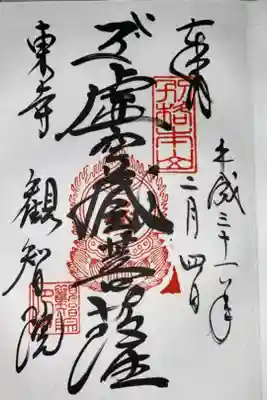 奉拝
平成三十一年
二月四日
別格本山
虚空蔵菩薩
東寺 観智院